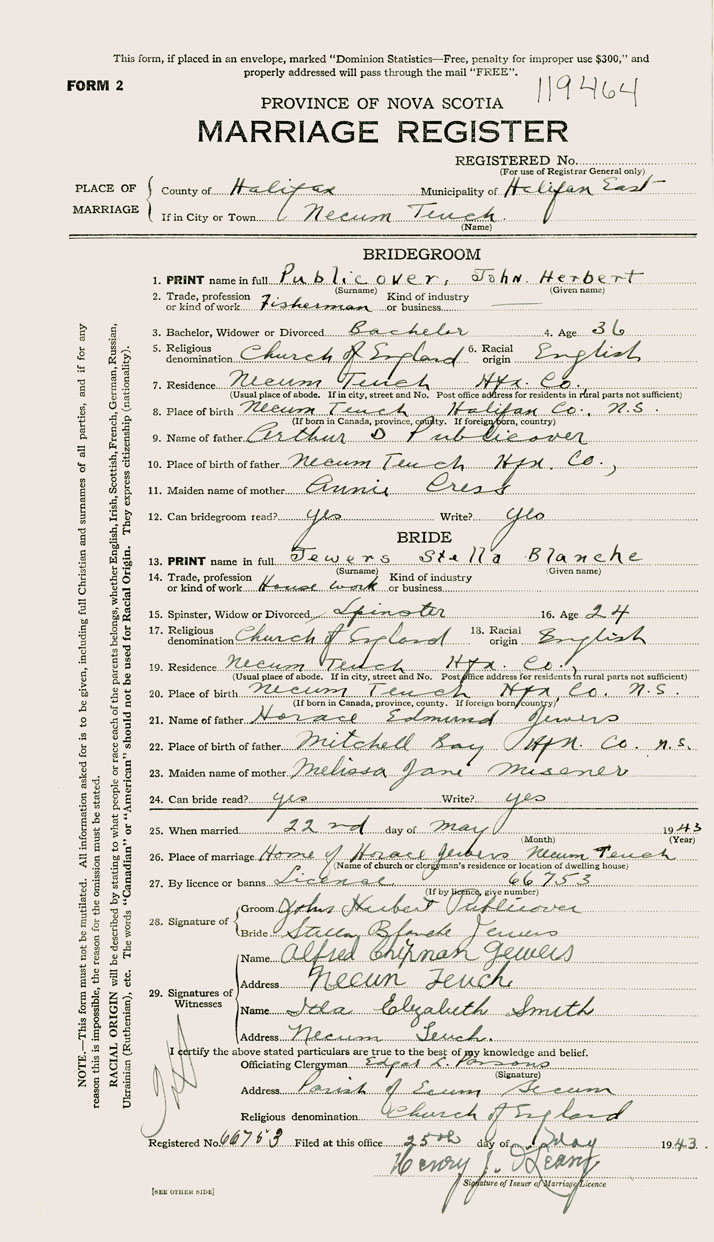 This form, if placed in an envelope, marked "Dominion Statistics—Free, penalty for improper use $300," and
properly addressed will pass through the mail "FREE".
FORM 2
119464
PROVINCE OF NOVA SCOTIA
MARRIAGE REGISTER
REGISTERED No.
(For use of Registrar General only)
PLACE OF MARRIAGE
County of Halifax Municipality of Halifax East
If in City or Town Necum Teuch
(Name)
BRIDEGROOM
1. PRINT name in full Publicover, John Herbert
(Surname) (Given name)
2. Trade, profession or kind of work Fisherman Kind of industry or business
3. Bachelor, Widower or Divorced Bachelor 4. Age 36
5. Religious denomination Church of England 6. Racial origin English
7. Residence Necum Teuch Hfx. Co.
(Usual place of abode. If in city, street and No. Post office address for residents in rural parts not sufficient)
8. Place of birth Necum Teuch Halifax Co., N.S.
(If born in Canada, province, county. If foreign born, country)
9. Name of father Arthur D Publicover
10. Place of birth of father Necum Teuch Hfx. Co.,
11. Maiden name of mother Annie Cress
12. Can bridegroom read? yes Write? yes
BRIDE
13. PRINT name in full Jewers Stella Blanche
(Surname) (Given name)
14. Trade, profession or kind of work House work Kind of industry or business
15. Spinster, Widow or Divorced Spinster 16. Age 24
17. Religious denomination Church of England 18. Racial origin English
19. Residence Necum Teuch Hfx. Co.,
(Usual place of abode. If in city, street and No. Post office address for residents in rural parts not sufficient)
20. Place of birth Necum Teuch Hfx. Co. N.S.
(If born in Canada, province, county. If foreign born, country)
21. Name of father Horace Edmund Jewers
22. Place of birth of father Mitchell Bay Hfx. Co. N.S.
23. Maiden name of mother Melissa Jane Misener
24. Can bride read? yes Write? yes
25. When married 22nd day of May 1943
(Month) (Year)
26. Place of marriage Home of Horace Jewers Necum Teuch
(Name of church or clergyman's residence or location of dwelling house)
27. By licence or banns License 66753
(If by licence, give number)
28. Signature of Groom John Herbert Publicover
Bride Stella Blanche Jewers
29. Signatures of Witnesses
Name Alfred Chipman Jewers
Address Necum Teuch
Name Ida Elizabeth Smith
Address Necum Teuch.
I certify the above stated particulars are true to the best of my knowledge and belief.
Officiating Clergyman Edgar L. Parsons
(Signature)
Address Parish of Ecum Secum
Religious denomination Church of England
Registered No. 66753 Filed at this office 25th day of May 1943.
Henry J.
Signature of Issuer of Marriage Licence
[SEE OTHER SIDE]
NOTE.—This form must not be mutilated. All information asked for is to be given, including full Christian and surnames of all parties, and if for any
reason this is impossible, the reason for the omission must be stated.
RACIAL ORIGIN will be described by stating to what people or race each of the parents belongs, whether English, Irish, Scottish, French, German, Russian,
Ukrainian (Ruthenian), etc. The words "Canadian" or "American" should not be used for Racial Origin. They express citizenship (nationality).